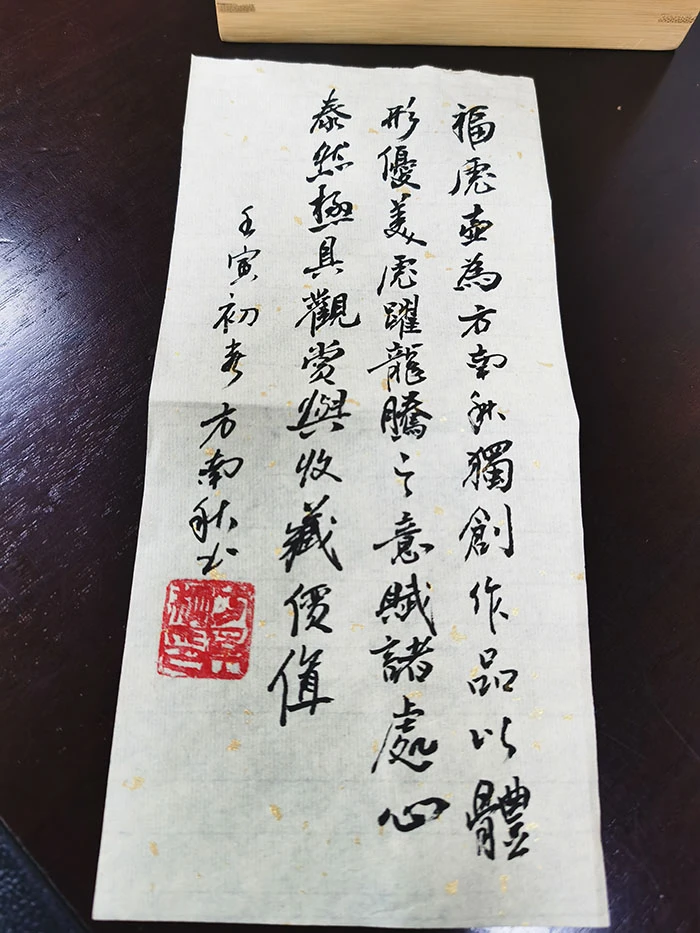 福虎壺為方南秋獨創作品以體
形優美虎躍龍騰之意賦諸處心
泰然極具觀賞與收藏價值
壬寅初春方南秋书